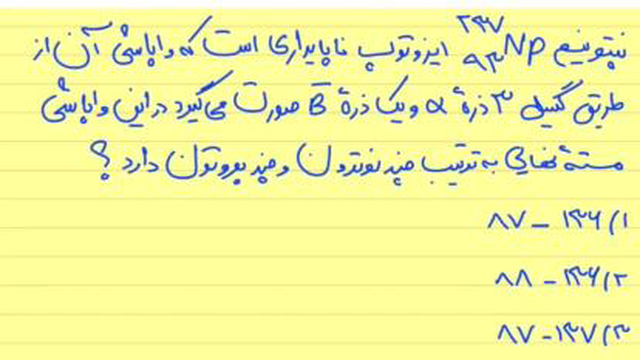 نپتونیم ²³⁷₉₃Np ایزوتوپ ناپایداری است که واپاشی آن از
طریق گسیل ۳ ذرهٔ α و یک ذرهٔ β⁻ صورت می‌گیرد در این واپاشی
هستهٔ نهایی به ترتیب چند نوترون و چند پروتون دارد ؟
۱) ۱۳۶ – ۸۷
۲) ۱۳۶ – ۸۸
۳) ۱۳۷ – ۸۷